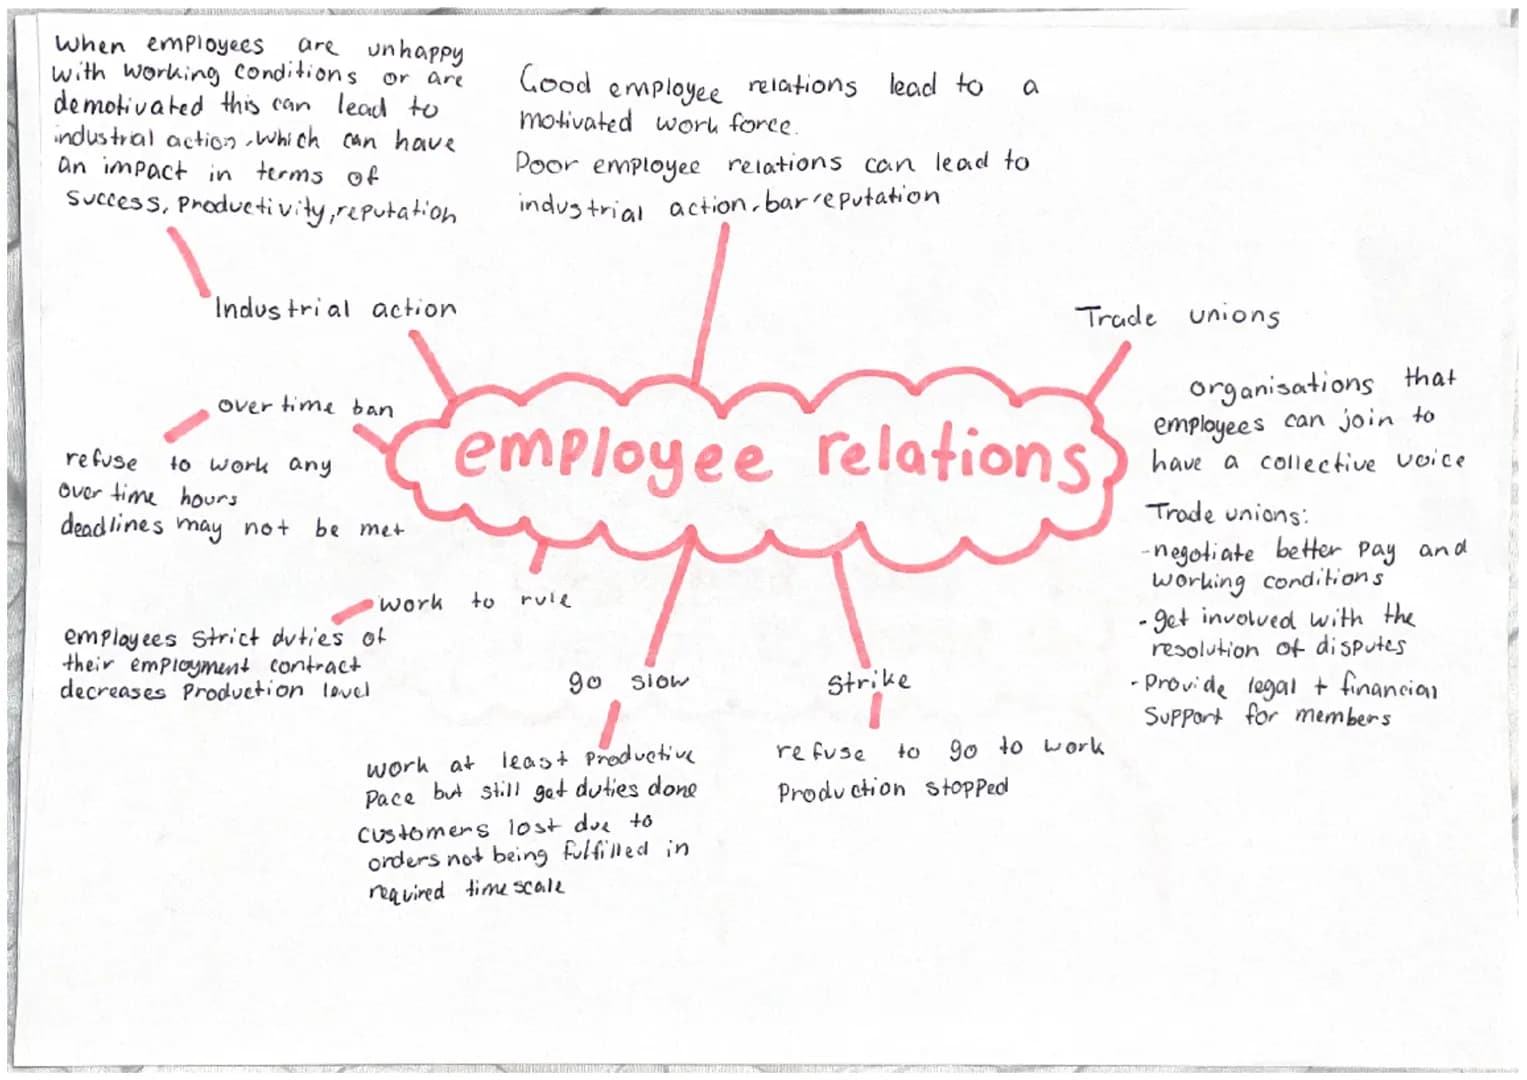 When employees are unhappy
with working conditions or are
demotivated this can lead to
industrial action, which can have
an impact in terms of
success, productivity, reputation
Industrial action
Good employee relations lead to a
motivated work force.
Poor employee relations can lead to
industrial action, bar reputation
employee relations
over time ban
refuse to work any
over time hours
deadlines may not be met
work to rule
employees strict duties of
their employment contract
decreases production level
go slow
work at least productive
pace but still get duties done
customers lost due to
orders not being fulfilled in
required time scale
strike
refuse to go to work
Production stopped
Trade unions
organisations that
employees can join to
have a collective voice
Trade unions:
-negotiate better pay and
working conditions
-get involved with the
resolution of disputes
-provide legal + financial
support for members